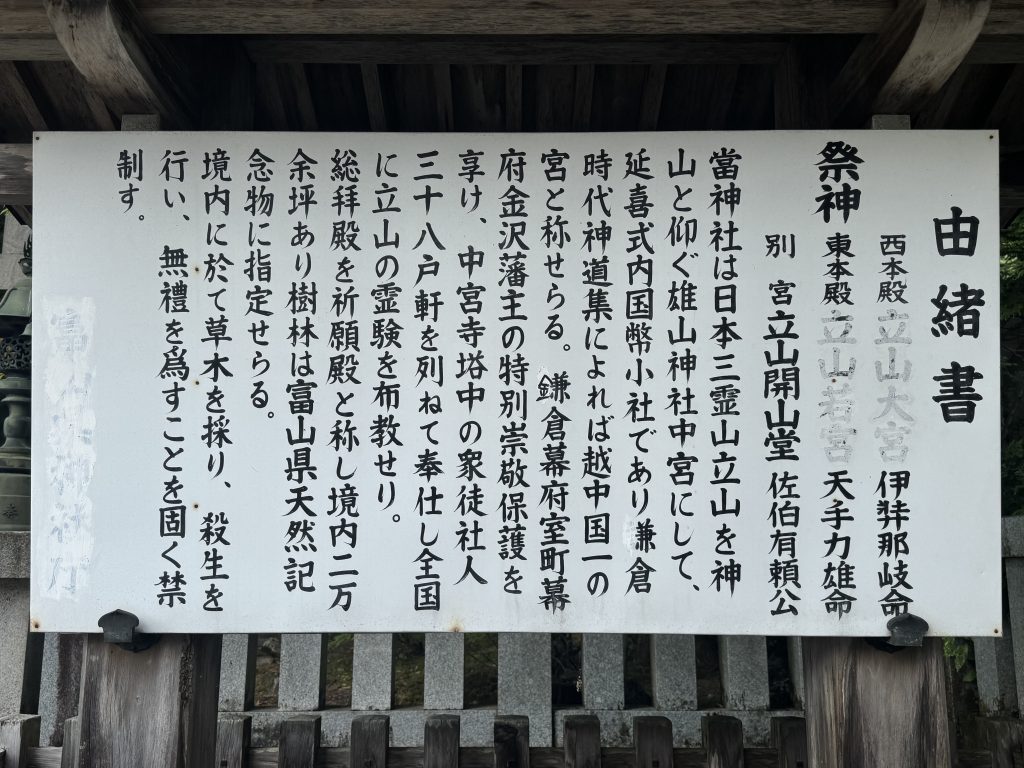 由緒書
祭神
西本殿 立山大宮 伊弉那岐命
東本殿 立山若宮 天手力雄命
別宮 立山開山堂 佐伯有頼公
當神社は日本三霊山立山を神
山と仰ぐ雄山神社中宮にして、
延喜式内国幣小社であり鎌倉
時代神道集によれば越中国一の
宮と称せらる。鎌倉幕府室町幕
府金沢藩主の特別崇敬保護を
享け、中宮寺塔中の衆徒社人
三十八戸軒を列ねて奉仕し全国
に立山の霊験を布教せり。
総拝殿を祈願殿と称し境内二万
余坪あり樹林は富山県天然記
念物に指定せらる。
境内に於て草木を採り、殺生を
行い、無禮を爲すことを固く禁
制す。
富山県神社庁